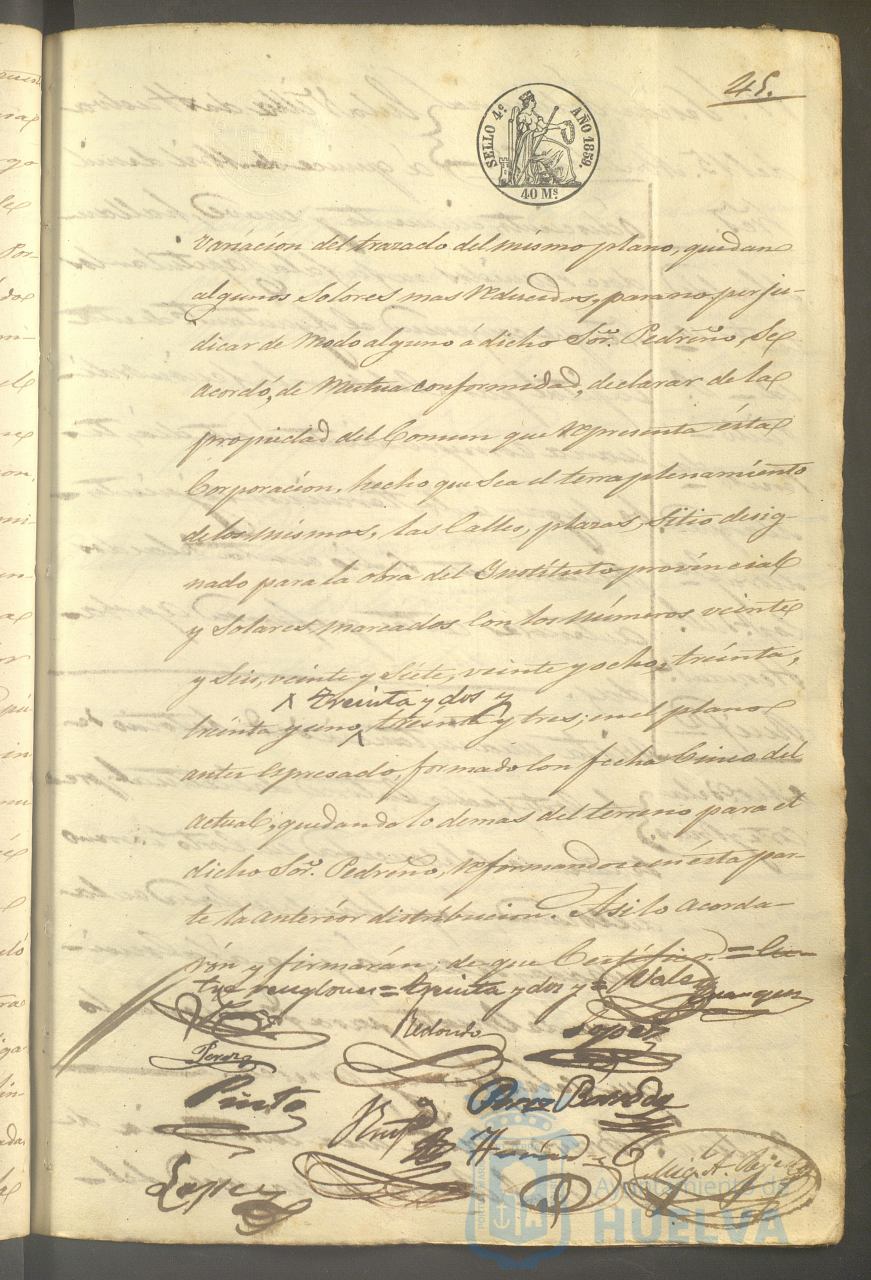 45.
SELLO 4º AÑO 1859.
40 Ms.
variacion del trazado del mismo plano, quedan
algunos Solores mas reducidos, para no perju-
dicar de modo alguno á dicho Sor. Pedreño, se
acordó, de mutua conformidad, declarar de la
propiedad del Comun que representa ésta
Corporacion, hecho que sea el terraplenamiento
de los mismos, las Calles, plazas, Sitio desig-
nado para la obra del Instituto provincial
y Solares marcados con los números veinte
y seis, veinte y siete, veinte y ocho, treinta,
treinta y dos y
treinta y uno, treinta y tres; en el plano
antes espresado, formado con fecha Cinco del
actual; quedando lo demas del terreno para el
dicho Sor. Pedreño, reformandose en ésta par-
te la anterior distribucion. Asi lo acorda-
rón y firmarán, de que Certífico = En-
tre renglones = treinta y dos y = Vale
Redondo
Lopez
Perez
Pinto
Perez
Lopez
Ayuntamiento de
HUELVA